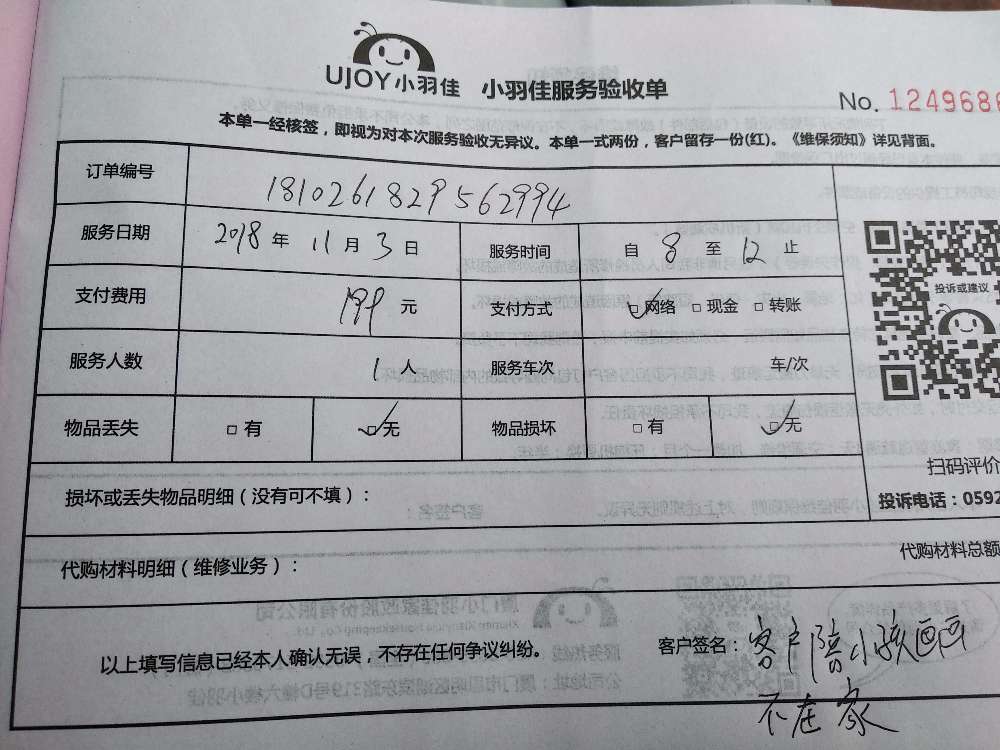 UJOY小羽佳 小羽佳服务验收单
No. 1249686
本单一经核签，即视为对本次服务验收无异议。本单一式两份，客户留存一份(红)。《维保须知》详见背面。
订单编号 1810261829562994
服务日期 2018年 11月3日 服务时间 自 8 至 12 止
投诉或建议
支付费用 199 元 支付方式 ☑网络 □现金 □转账
服务人数 1人 服务车次 车/次
物品丢失 □有 ☑无 物品损坏 □有 ☑无
扫码评价
损坏或丢失物品明细（没有可不填）：
投诉电话：0592
代购材料明细（维修业务）： 代购材料总额
以上填写信息已经本人确认无误，不存在任何争议纠纷。 客户签名：客户陪小孩画画
不在家